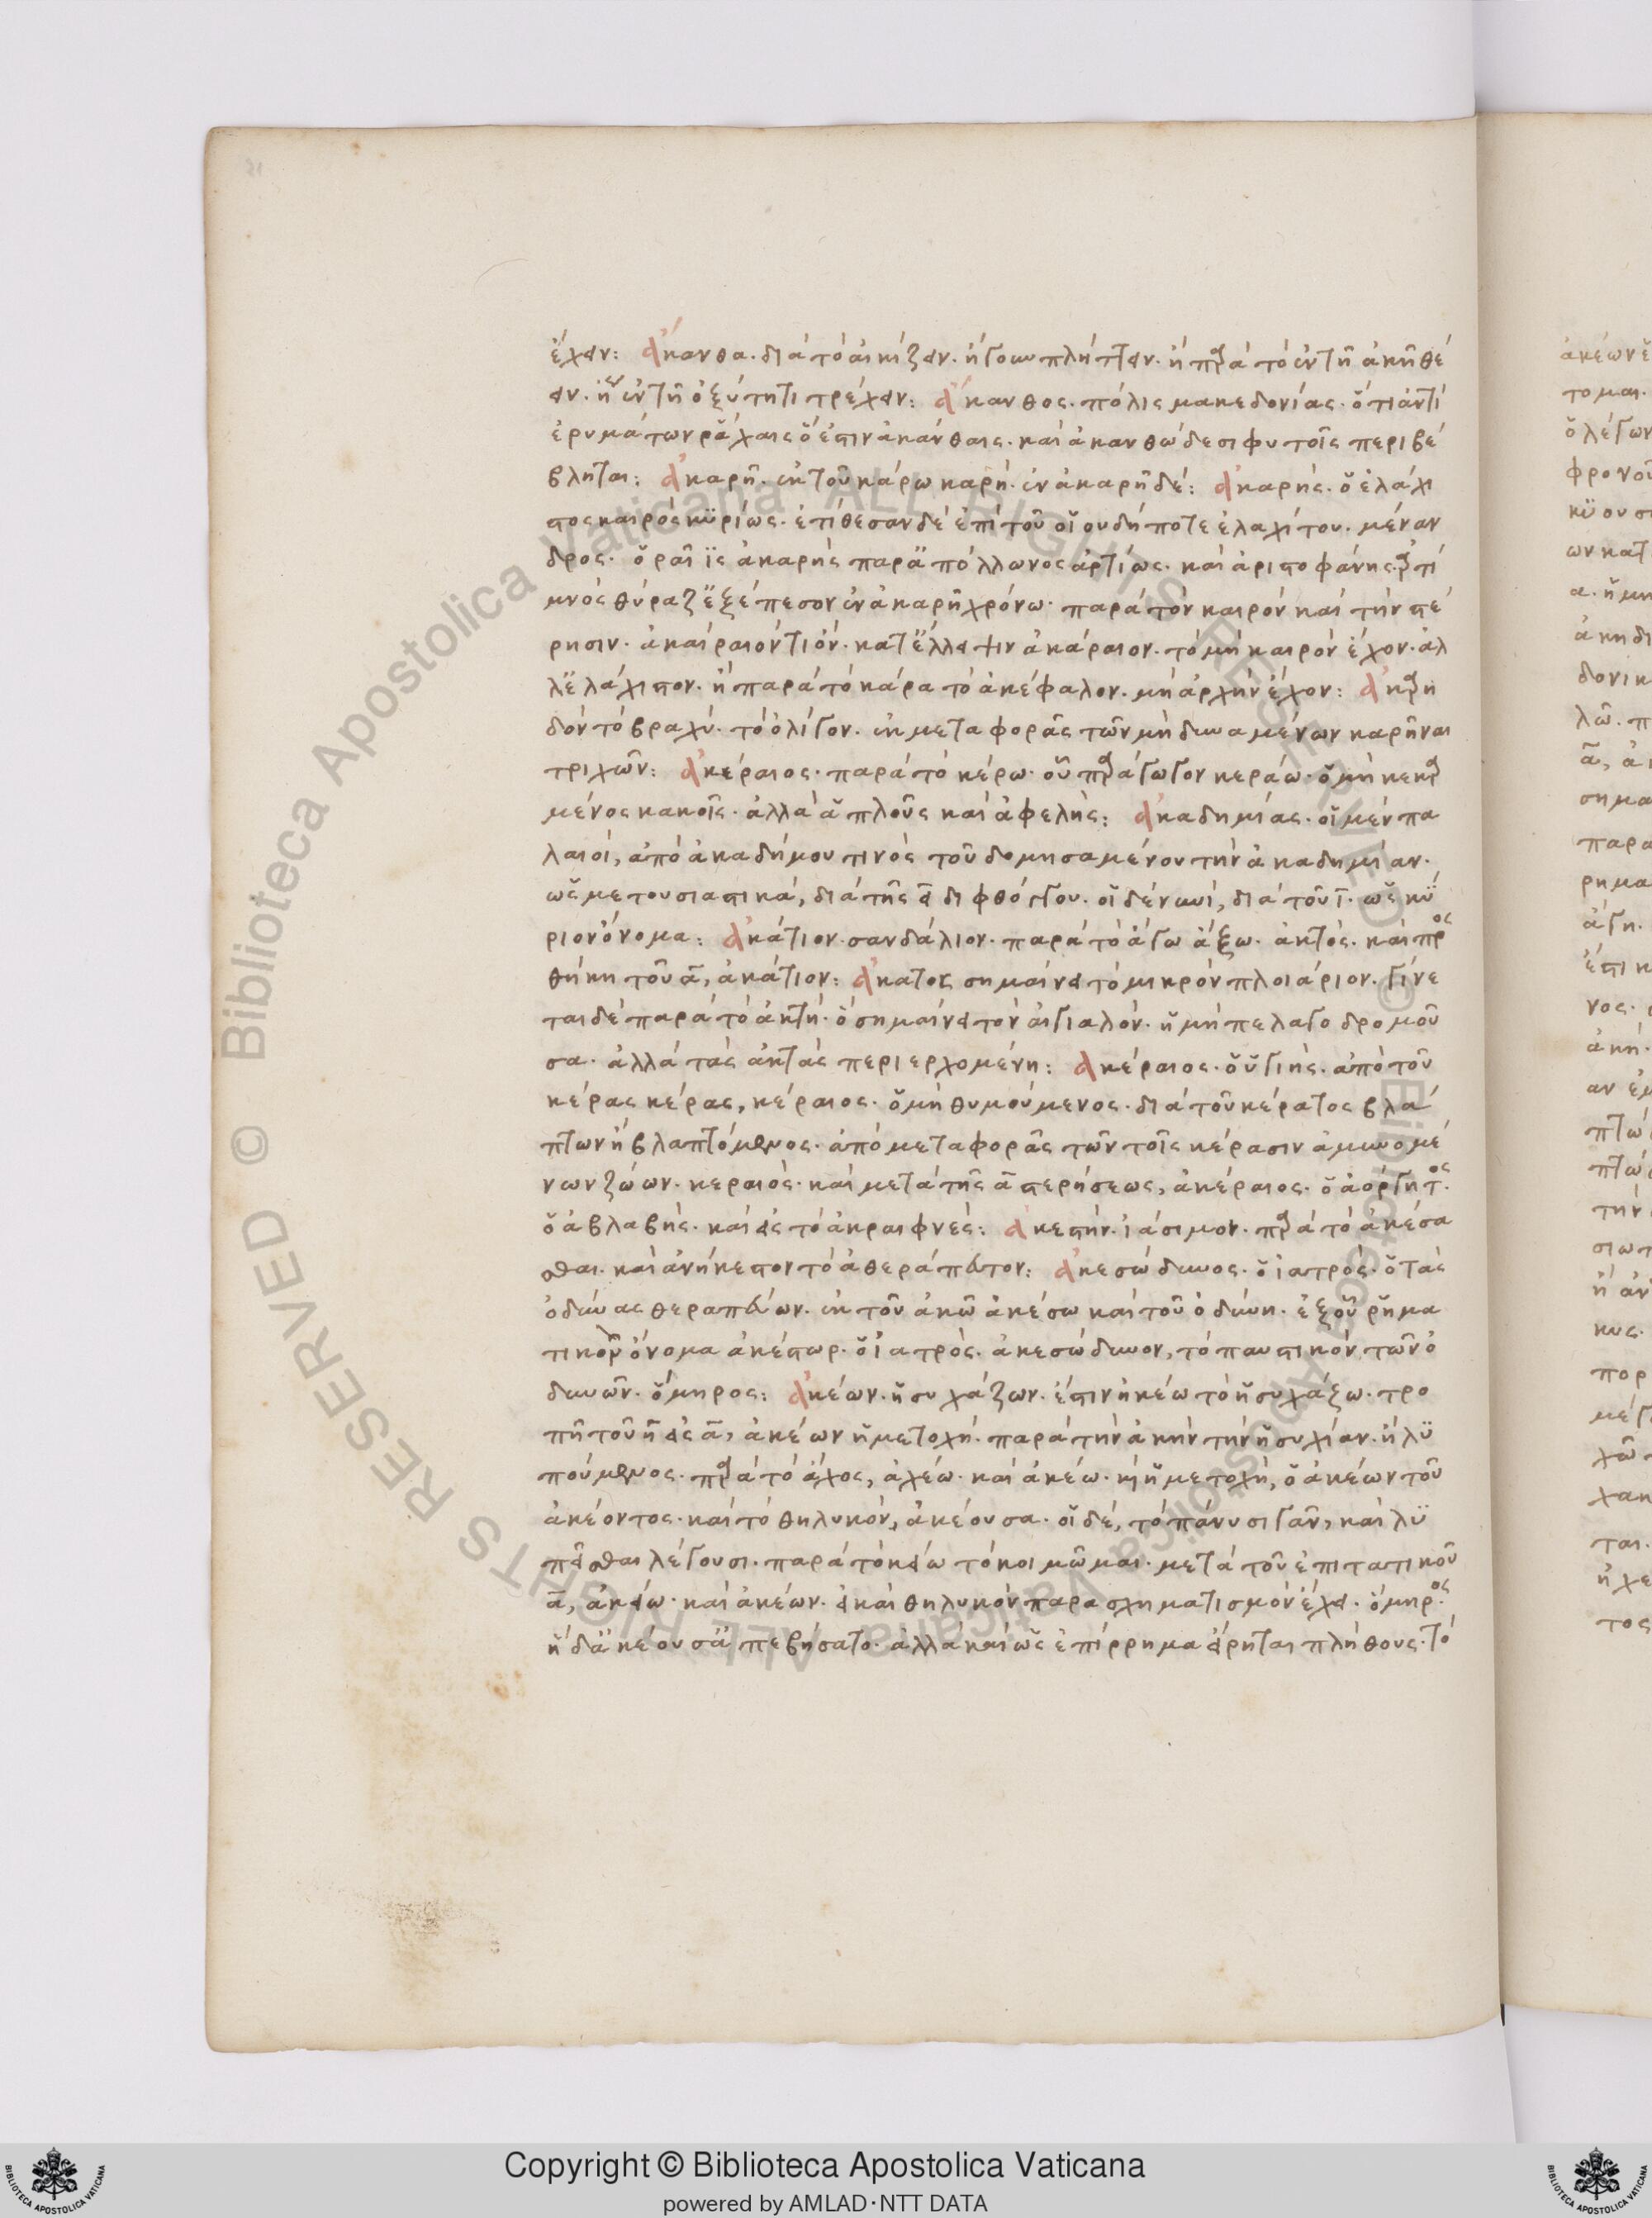 ἔχειν: ἄκανθα. διὰ τὸ αἰκίζειν. ἤγουν πλήττειν. ἢ παρὰ τὸ ἐν τῇ ἀκῇ θέ
ειν. ἤγουν ἐν τῇ ὀξύτητι τρέχειν: ἄκανθος. πόλις μακεδονίας. ὅτι ἀντὶ
ἐρυμάτων ῥάχαις ὅ ἐστιν ἀκάνθαις. καὶ ἀκανθώδεσι φυτοῖς περιβέ
βληται: ἀκαρῆ. ἐκ τοῦ κάρω καρή. ἐν ἀκαρῆ δέ: ἀκαρής. ὁ ἐλάχι
στος καιρὸς κυρίως. ἐτίθεσαν δὲ ἐπὶ τοῦ οἵου δήποτε ἐλαχίτου. μέναν
δρος. ὁραῖϊς ἀκαρὴς παραπόλλωνος ἀρτίως. καὶ ἀριστοφάνης.
μνὸς θύραζ ἐξέπεσον ἐν ἀκαρῆ χρόνω. παρὰ τὸν καιρὸν καὶ τὴν στέ
ρησιν. ἀκαίραιόν τι ὄν. κατ ἔλλειψιν ἀκάραιον. τὸ μὴ καιρὸν ἔχον. ἀλ
λ ἐλάχιστον. ἢ παρὰ τὸ κάρα τὸ ἀκέφαλον. μὴ ἀρχὴν ἔχον: ἀκαρη
δὸν τὸ βραχύ. τὸ ὀλίγον. ἐκ μεταφορᾶς τῶν μὴ δυναμένων καρῆναι
τριχῶν: ἀκέραιος. παρὰ τὸ κέρω. οὗ παράγωγον κεράω. ὁ μὴ κεκρα
μένος κακοῖς. ἀλλὰ ἁπλοῦς καὶ ἀφελής: ἀκαδημίας. οἱ μὲν πα
λαιοί, ἀπὸ ἀκαδήμου τινὸς τοῦ δομησαμένου τὴν ἀκαδημίαν.
ὡς μετουσιαστικά, διὰ τῆς ει διφθόγγου. οἱ δὲ νυνί, διὰ τοῦ ι. ὡς κύ
ριον ὄνομα: ἀκάτιον. σανδάλιον. παρὰ τὸ ἄγω ἄξω. ἀκτός. καὶ προς
θήκη τοῦ α, ἀκάτιον: ἄκατος σημαίνει τὸ μικρὸν πλοιάριον. γίνε
ται δὲ παρὰ τὸ ἀκτή. ὃ σημαίνει τὸν αἰγιαλόν. ἡ μὴ πελαγοδρομοῦ
σα. ἀλλὰ τὰς ἀκτὰς περιερχομένη: ἀκέραιος. ὁ ὑγιής. ἀπὸ τοῦ
κέρας κέρας, κέραιος. ὁ μὴ θυμούμενος. διὰ τοῦ κέρατος βλά
πτων ἢ βλαπτόμενος. ἀπὸ μεταφορᾶς τῶν τοῖς κέρασιν ἀμυνομέ
νων ζώων. κεραιός. καὶ μετὰ τῆς α στερήσεως, ἀκέραιος. ὁ ἀόργητος.
ὁ ἀβλαβής. καὶ εἰς τὸ ἀκραιφνές: ἀκεστήν. ἰάσιμον. παρὰ τὸ ἀκέσα
σθαι. καὶ ἀνήκεστον τὸ ἀθεράπευτον: ἀκεσώδυνος. ὁ ἰατρός. ὁ τὰς
ὀδύνας θεραπεύων. ἐκ τοῦ ἀκῶ ἀκέσω καὶ τοῦ ὀδύνη. ἐξ οὗ ῥημα
τικὸν ὄνομα ἀκέστωρ. ὁ ἰατρός. ἀκεσώδυνον, τὸ παυστικὸν τῶν ὀ
δυνῶν. ὅμηρος: ἀκέων. ἡσυχάζων. ἔστιν ἠκέω τὸ ἡσυχάζω. τρο
πῇ τοῦ η εἰς α, ἀκέων ἡ μετοχή. παρὰ τὴν ἀκὴν τὴν ἡσυχίαν. ἢ λυ
πούμενος. παρὰ τὸ ἄχος, ἀχέω. καὶ ἀκέω. κἡ ἡ μετοχή, ὁ ἀκέων τοῦ
ἀκέοντος. καὶ τὸ θηλυκόν, ἀκέουσα. οἱ δέ, τὸ πάνυ σιγᾶν, καὶ λυ
πεῖσθαι λέγουσι. παρὰ τὸ κείω τὸ κοιμῶμαι. μετὰ τοῦ ἐπιτατικοῦ
α, ἀκείω. καὶ ἀκέων. εἰ καὶ θηλυκὸν παρασχηματισμὸν ἔχει. ὅμηρος.
ἡ δ ἀκέουσ ἀπεβήσατο. ἀλλὰ καὶ ὡς ἐπίρρημα εἴρηται πλήθους. τὸ
Copyright © Biblioteca Apostolica Vaticana
powered by AMLAD・NTT DATA